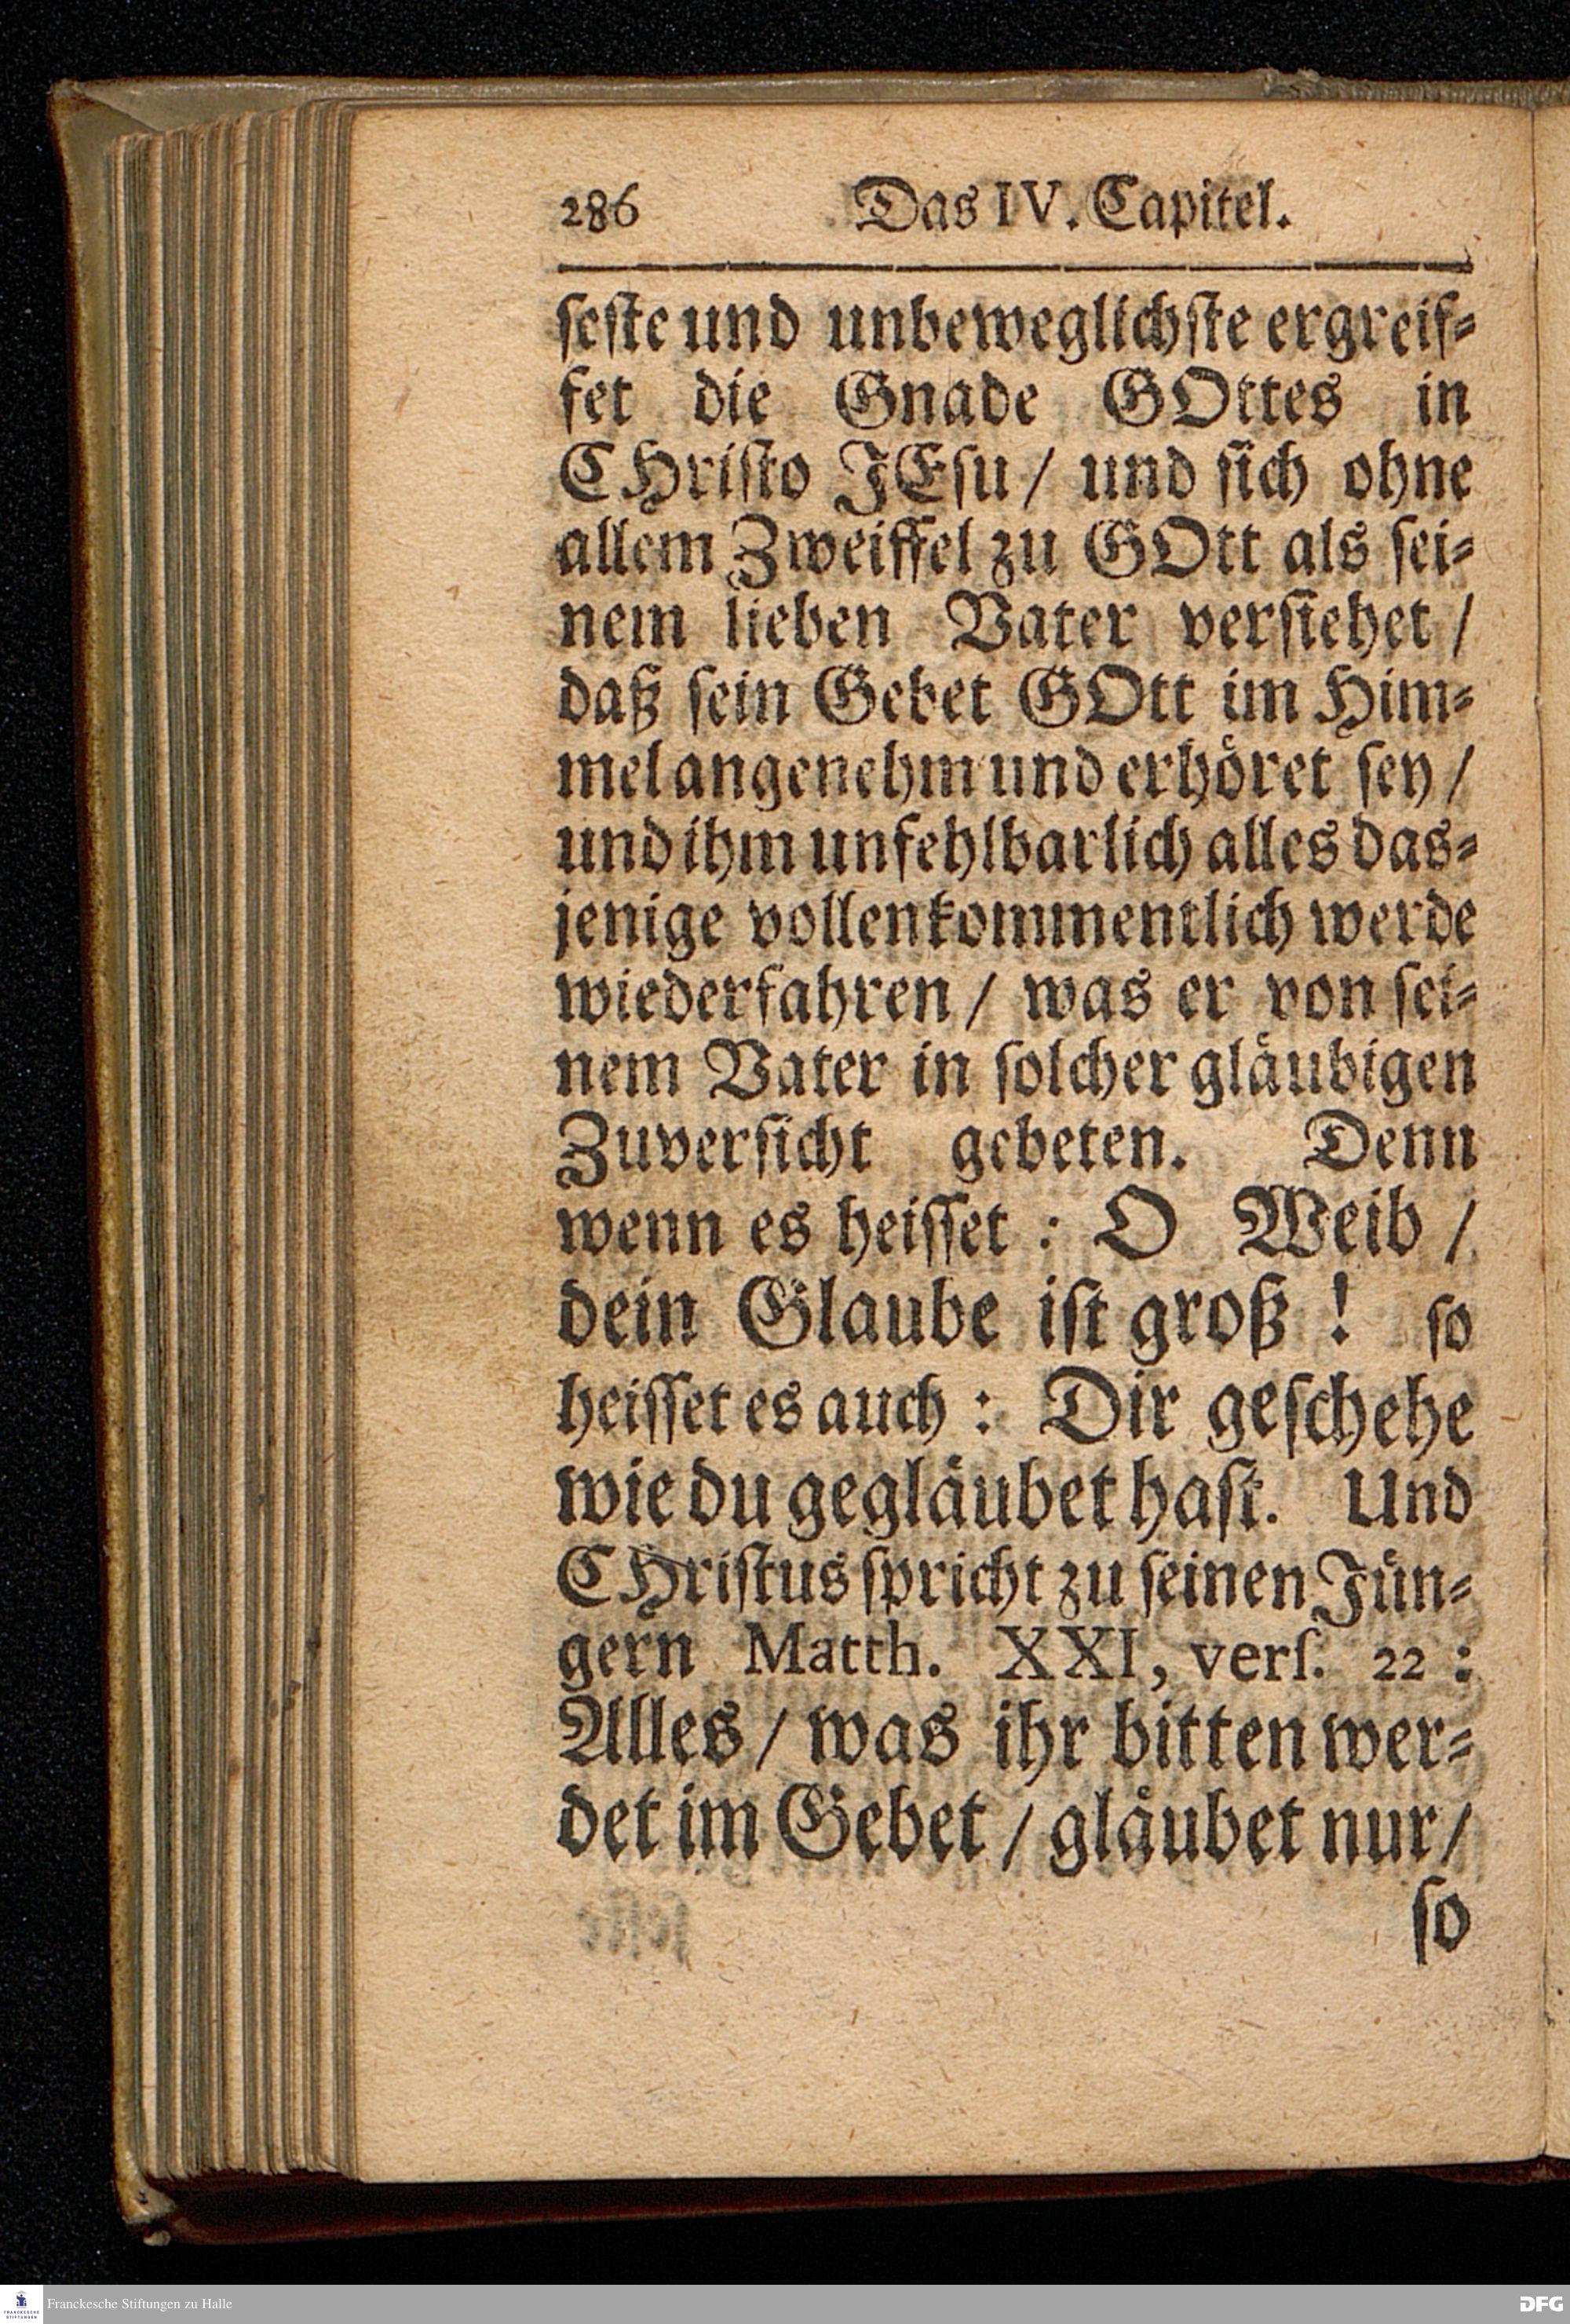 286 Das IV. Capitel.
feste und unbeweglichste ergreif-
fet die Gnade GOttes in
CHristo JEsu / und sich ohne
allem Zweiffel zu GOtt als sei-
nem lieben Vater versiehet /
daß sein Gebet GOtt im Him-
mel angenehm und erhöret sey /
und ihm unfehlbarlich alles das-
jenige vollenkommentlich werde
wiederfahren / was er von sei-
nem Vater in solcher gläubigen
Zuversicht gebeten. Denn
wenn es heisset : O Weib /
dein Glaube ist groß ! so
heisset es auch : Dir geschehe
wie du gegläubet hast. Und
CHristus spricht zu seinen Jün-
gern Matth. XXI, vers. 22 :
Alles / was ihr bitten wer-
det im Gebet / gläubet nur /
so
FRANCKESCHE STIFTUNGEN
Franckesche Stiftungen zu Halle
DFG